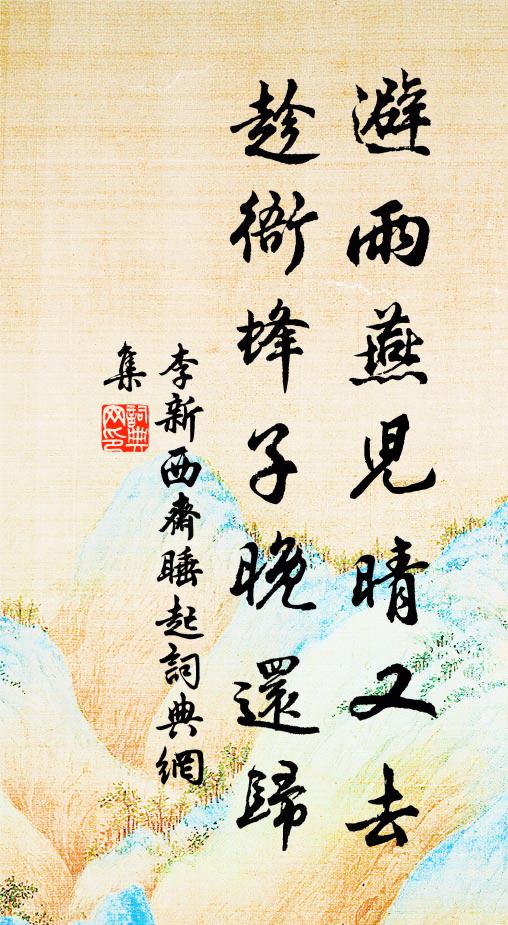 避雨燕兒晴又去
趁衙蜂子晚還歸
李新西齋睡起詞典網
集
詞典网印